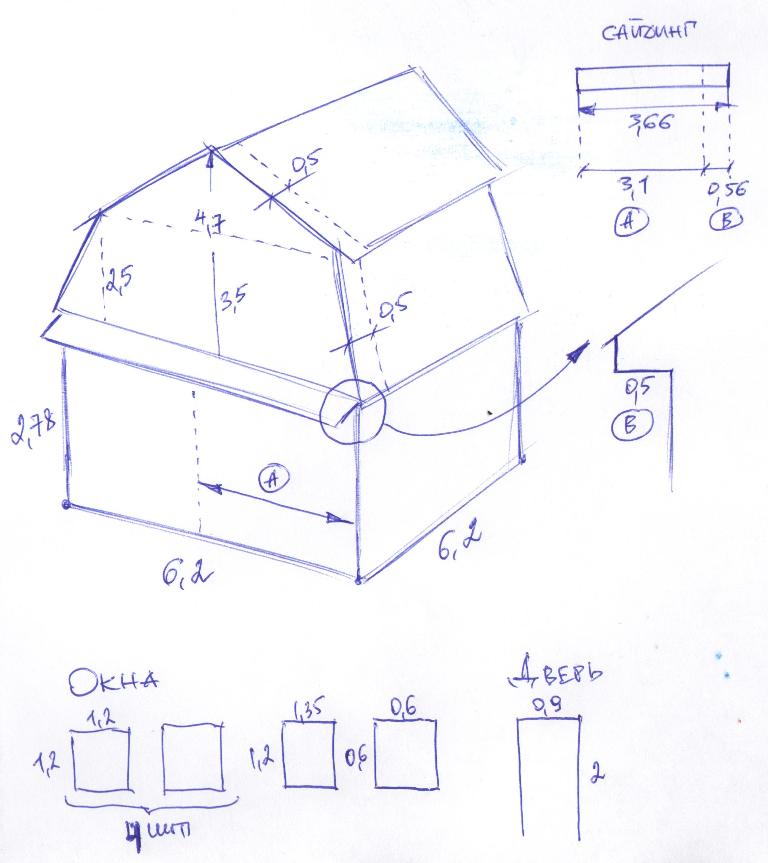 САЙДИНГ
3,66
3,1
0,56
А
В
0,5
4,7
2,5
3,5
0,5
0,5
В
2,78
А
6,2
6,2
ОКНА
ДВЕРЬ
1,2
1,35
0,6
0,9
1,2
1,2
0,6
2
4 шт